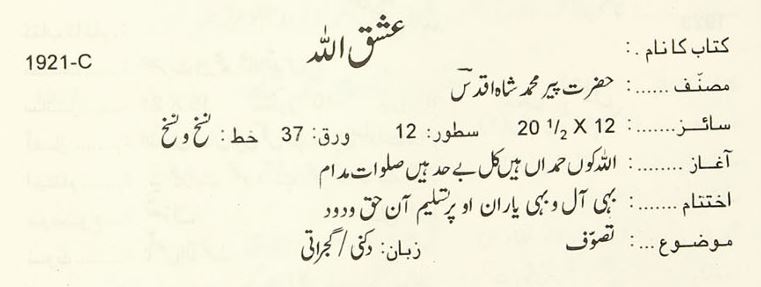 کتاب کا نام .: عشق اللہ 1921-C
مصنّف ......: حضرت پیر محمد شاہ اقدسؒ
سائـز.......: 20 1/2 X 12 سطور: 12 ورق: 37 خط: نسخ و نسخ
آغـاز ........: اللہ کوں حمد اں ہیں کل بے حد ہیں صلوات مدام
اختتام .......: بہی آل و بہی یاران او پر تسلیم آن حق ودود
موضـوع ...: تصوّف زبان: دکنی / گجراتی